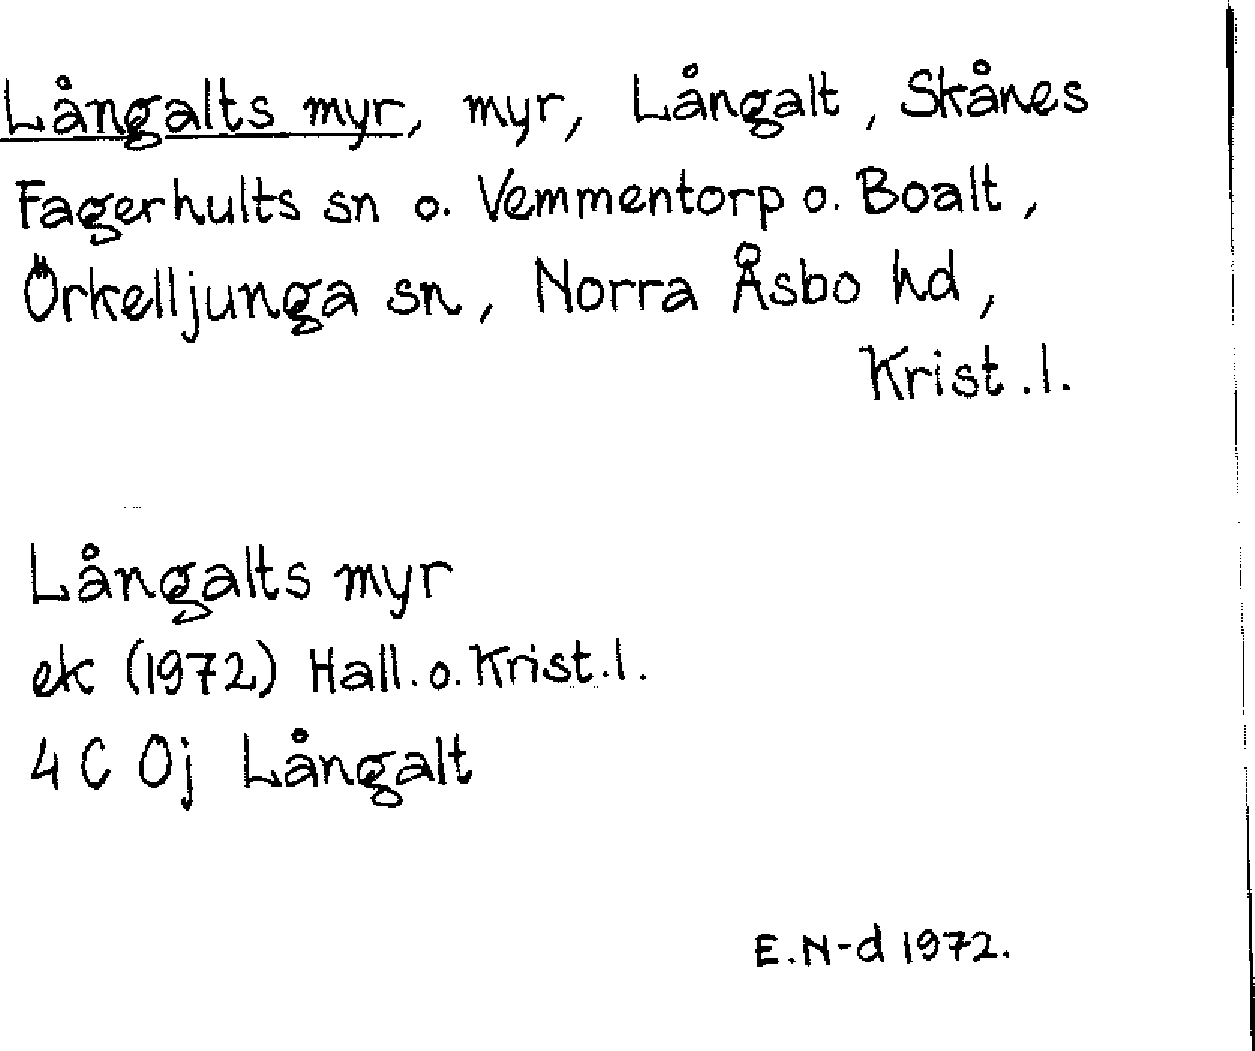 Långalts myr, myr, Långalt, Skånes
Fagerhults sn o. Vemmentorp o. Boalt,
Örkelljunga sn, Norra Åsbo hd,
Krist.l.
Långalts myr
ek (1972) Hall. o. Krist.l.
4 C Oj Långalt
E.N-d 1972.